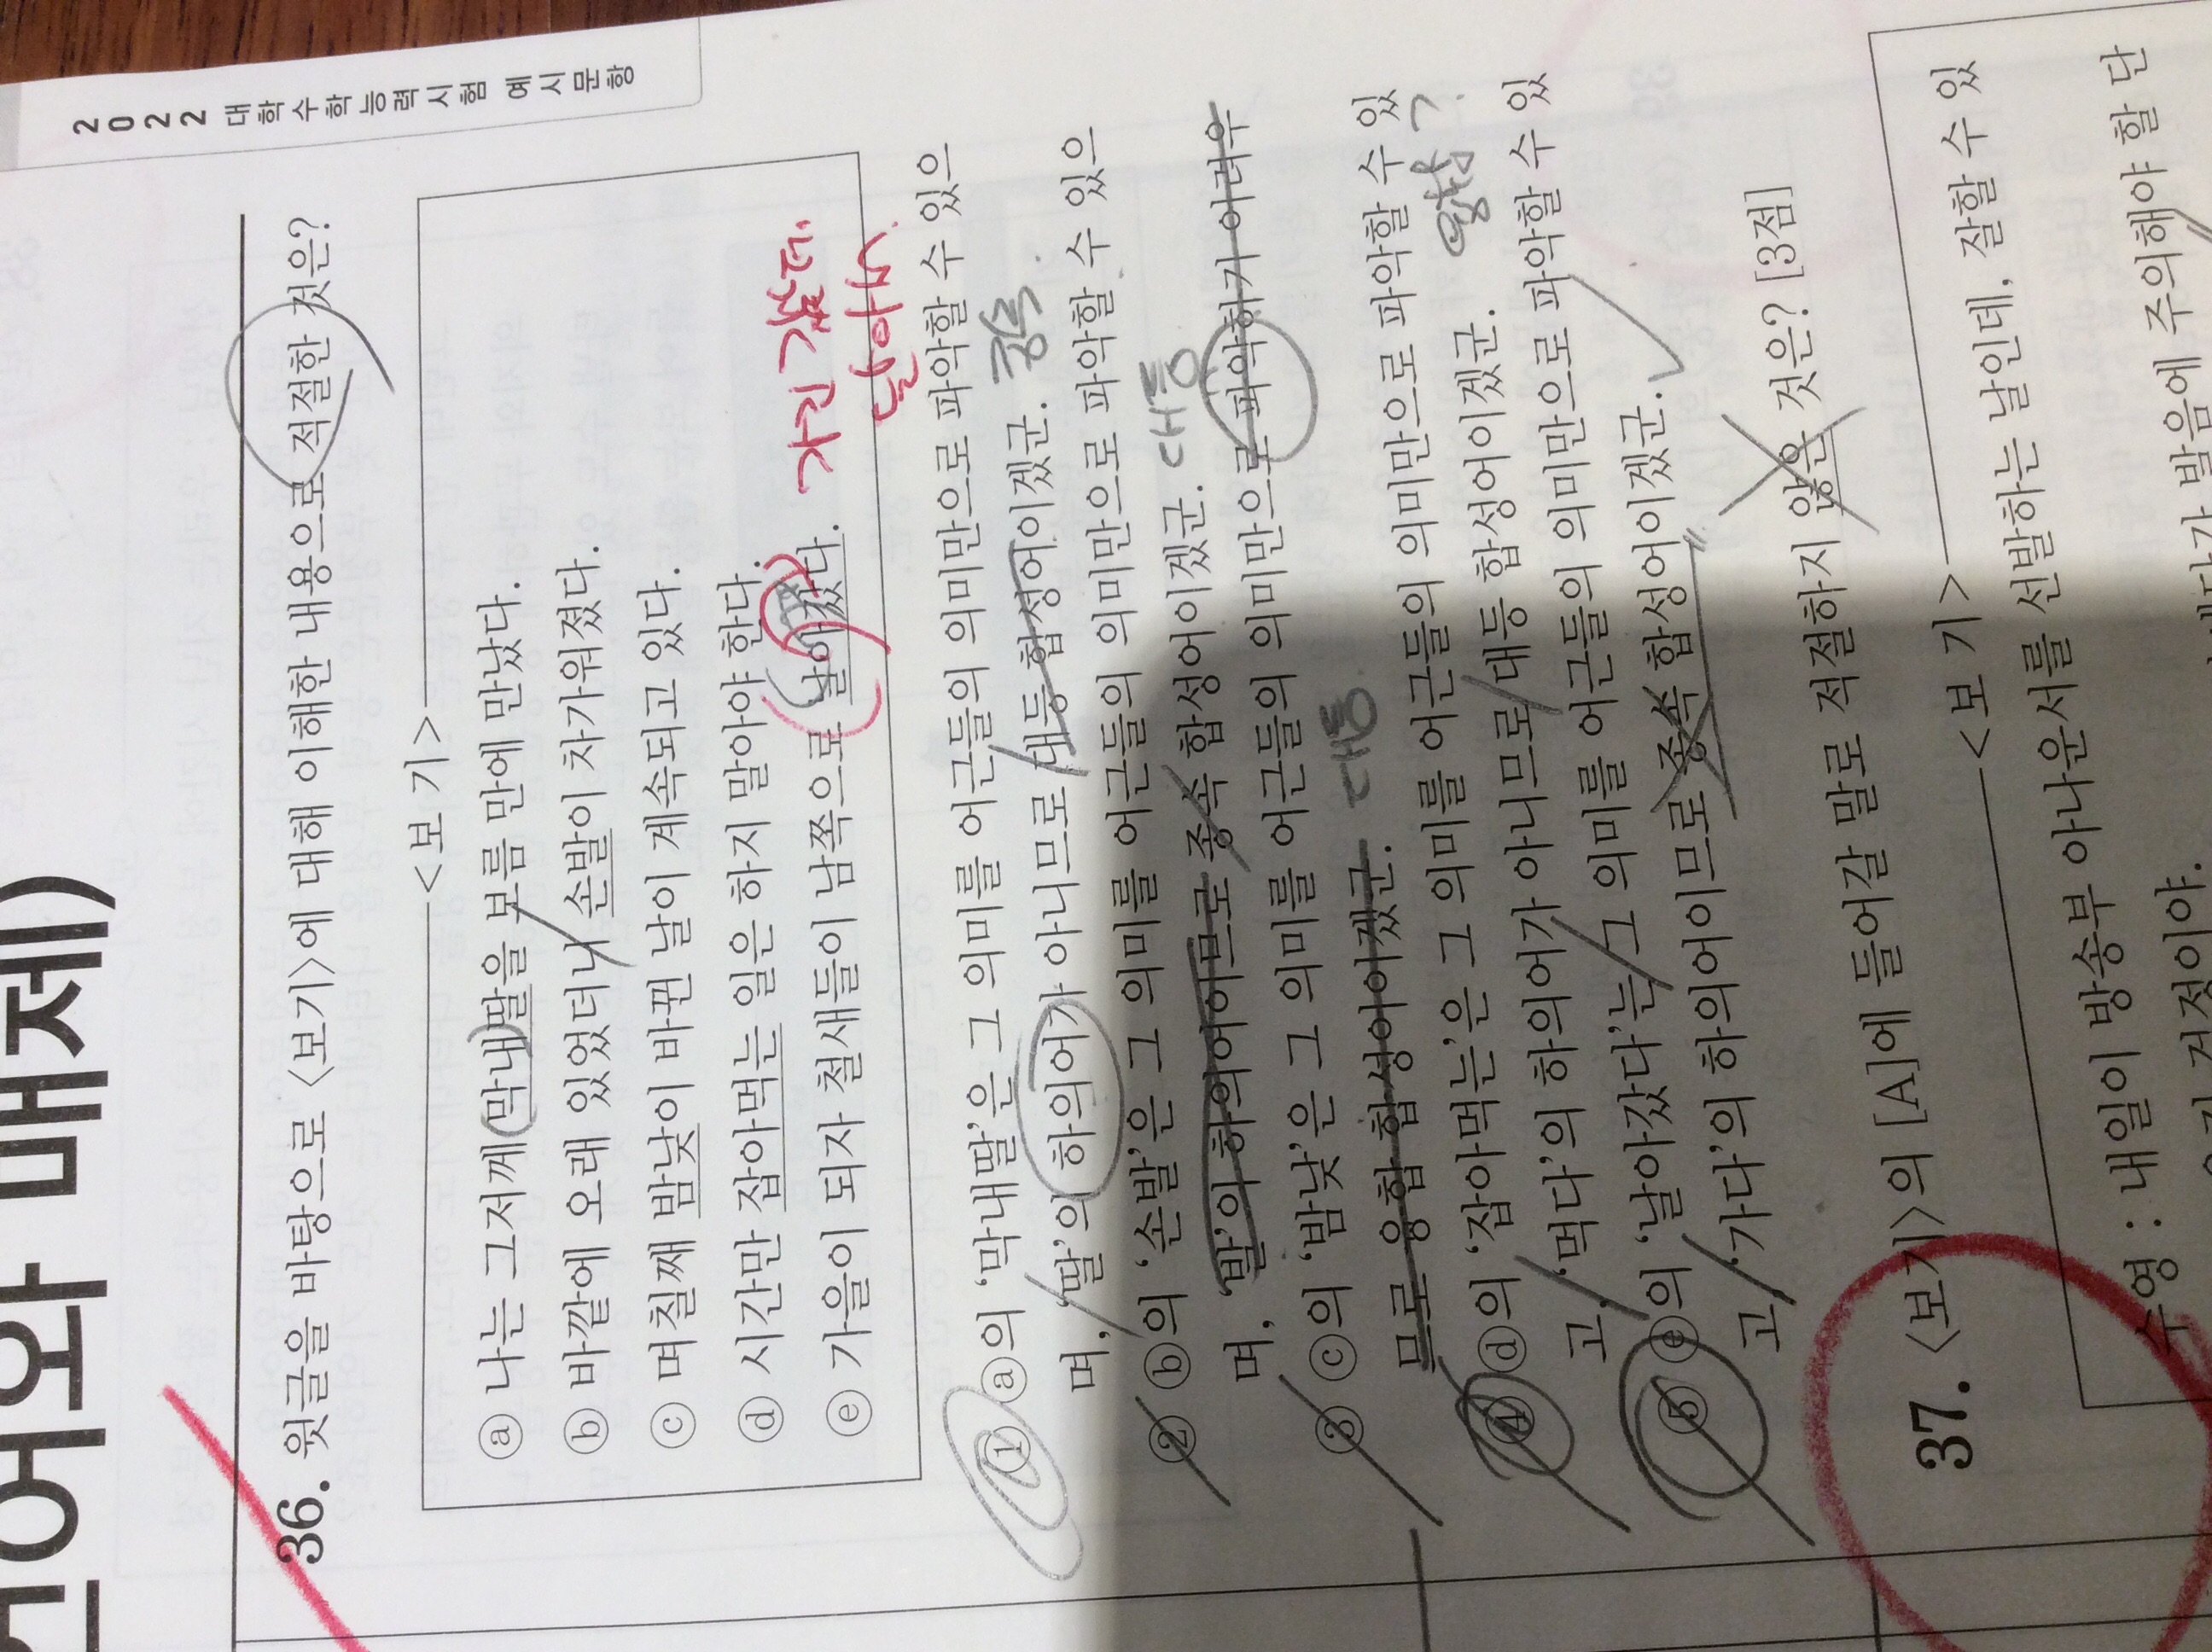 2022 대학수학능력시험 예시문항
언어와 매체)
36. 윗글을 바탕으로 <보기>에 대해 이해한 내용으로 적절한 것은?
<보 기>
ⓐ 나는 그저께 막내딸을 보름 만에 만났다.
ⓑ 바깥에 오래 있었더니 손발이 차가워졌다.
ⓒ 며칠째 밤낮이 바뀐 날이 계속되고 있다.
ⓓ 시간만 잡아먹는 일은 하지 말아야 한다.
ⓔ 가을이 되자 철새들이 남쪽으로 날아갔다.
가긴 갔는데
날아서
① ⓐ의 ‘막내딸’은 그 의미를 어근들의 의미만으로 파악할 수 있으
며, ‘딸’의 하의어가 아니므로 대등 합성어이겠군. 종속
② ⓑ의 ‘손발’은 그 의미를 어근들의 의미만으로 파악할 수 있으
며, ‘발’의 하의어이므로 종속 합성어이겠군. 대등
③ ⓒ의 ‘밤낮’은 그 의미를 어근들의 의미만으로 파악하기 어려우
므로 융합 합성어이겠군. 대등
④ ⓓ의 ‘잡아먹는’은 그 의미를 어근들의 의미만으로 파악할 수 있
고, ‘먹다’의 하의어가 아니므로 대등 합성어이겠군.
⑤ ⓔ의 ‘날아갔다’는 그 의미를 어근들의 의미만으로 파악할 수 있
고, ‘가다’의 하의어이므로 종속 합성어이겠군.
37. <보기>의 [A]에 들어갈 말로 적절하지 않은 것은? [3점]
<보 기>
수영 : 내일이 방송부 아나운서를 선발하는 날인데, 잘할 수 있
걱정이야.
발음에 주의해야 할 단